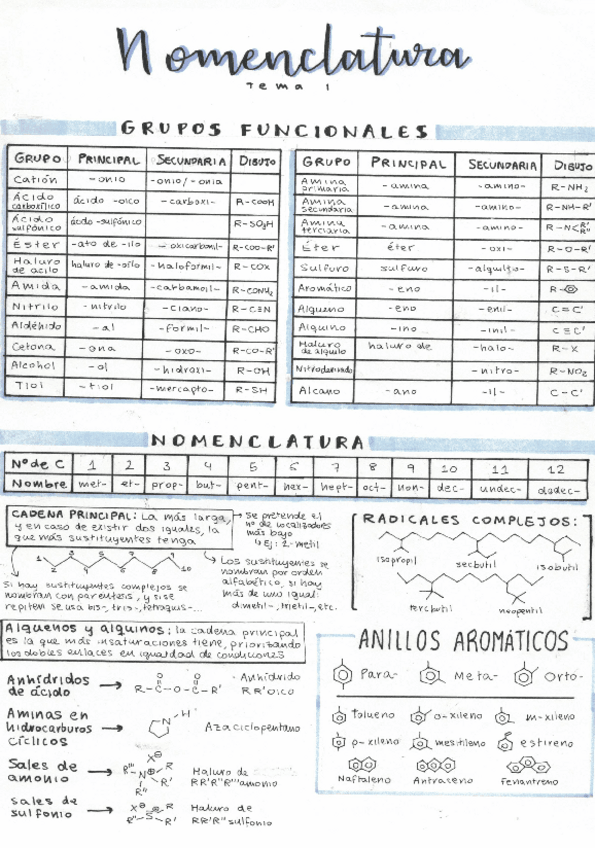 Nomenclatura
Tema 1
GRUPOS FUNCIONALES
GRUPO PRINCIPAL SECUNDARIA DIBUJO
Catión -onio -onio/-onia
Ácido carboxílico ácido -oico -carboxi- R-COOH
Ácido sulfónico ácido -sulfónico R-SO3H
Éster -ato de -ilo -oxicarbonil- R-COO-R'
Haluro de acilo haluro de -oílo -haloformil- R-COX
Amida -amida -carbamoil- R-CONH2
Nitrilo -nitrilo -ciano- R-C≡N
Aldehído -al -formil- R-CHO
Cetona -ona -oxo- R-CO-R'
Alcohol -ol -hidroxi- R-OH
Tiol -tiol -mercapto- R-SH
GRUPO PRINCIPAL SECUNDARIA DIBUJO
Amina primaria -amina -amino- R-NH2
Amina secundaria -amina -amino- R-NH-R'
Amina terciaria -amina -amino- R-N<R' R''
Éter éter -oxi- R-O-R'
Sulfuro sulfuro R-S-R'
Aromático -eno -il- R-
Alqueno -eno -enil- C=C'
Alquino -ino -inil- C≡C'
Haluro de alquilo haluro de -halo- R-X
-nitro- R-NO2
Alcano -ano -il- C-C'
NOMENCLATURA
Nº de C 1 2 3 4 5 6 7 8 9 10 11 12
Nombre met- et- prop- but- pent- hex- hept- oct- non- dec- undec- dodec-
CADENA PRINCIPAL: La más larga,
y en caso de existir dos iguales, la
que más sustituyentes tenga
→ Se pretende el
nº de localizadores
más bajo
↳ Ej: 2-metil
1 2 3 4 5 6 7 8 9 10
Si hay sustituyentes complejos se
nombran con parentesis, y si se
repiten se usa bis-, tris-, tetraquis-...
Los sustituyentes se
nombran por orden
alfabético, si hay
más de uno igual:
dimetil-, trietil-, etc.
RADICALES COMPLEJOS:
isopropil secbutil isobutil
tercbutil neopentil
Alquenos y alquinos: la cadena principal
es la que más insaturaciones tiene, priorizando
los dobles enlaces en igualdad de condiciones
Anhídridos
de ácido → R-C-O-C-R' O O
-Anhídrido
RR'oico
Aminas en
hidrocarburos
cíclicos → N H Azaciclopentano
Sales de
amonio → X⊖ R''' N⊕ R R' R''
Haluro de
RR'R''R'''amonio
Sales de
sulfonio → X⊖ R R''-S⊕-R'
Haluro de
RR'R''sulfonio
ANILLOS AROMÁTICOS
Para- Meta- Orto-
tolueno o-xileno m-xileno
p-xileno mesitileno estireno
Naftaleno Antraceno Fenantreno